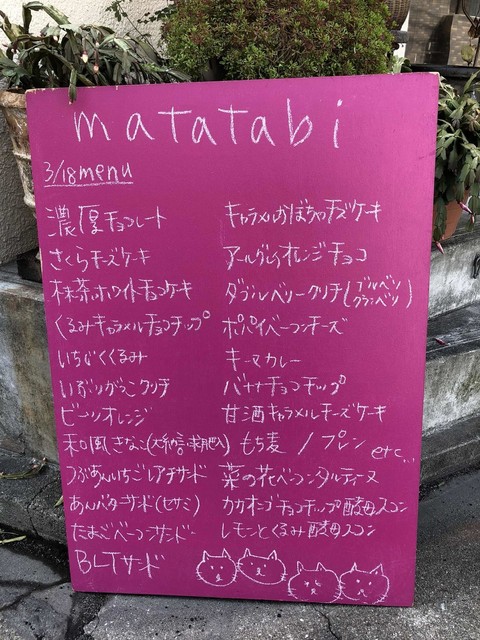 matatabi
3/18menu
濃厚チョコレート
さくらチーズケーキ
抹茶ホワイトチョコケーキ
くるみキャラメルチョコチップ
いちじくくるみ
いぶりがっこクリチ
ピールオレンジ
和風きなこ(大納言求肥入)
つぶあんいちごレアチサンド
あんバターサンド(セサミ)
たまごベーコンサンド
BLTサンド
キャラメルかぼちゃチーズケーキ
アールグレイオレンジチョコ
ダブルベリークリチ(ブルベリ クランベリ)
ポパイベーコンチーズ
キーマカレー
バナナチョコチップ
甘酒キャラメルチーズケーキ
もち麦 / プレン etc...
菜の花ベーコンタルティーヌ
カカオニブチョコチップ酵母スコン
レモンとくるみ酵母スコン